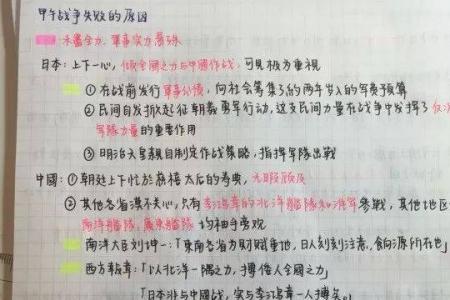 甲午战争失败的原因
未盡全力,軍事实力懸殊
日本:上下一心,傾全國之力与中國作战,可見極为重視
①在战前发行軍事公債,向社会筹集了約两年岁入的军费预算
②民间自发掀起征朝義勇军行动,这支民间力量在战争中发揮了
軍隊力量的重要作用
③明治天皇親自制定作战策略,指揮军隊出戰
中國:①朝廷上下忙於慈禧太后的寿典,无暇顾及
②其他各省漠不关心,只有李鸿章的北洋艦隊和淮军参戰,其他地区
南洋艦隊、廣東艦隊均袖手旁观
南洋大臣刘坤一:「東南各省为财赋重地,日人刻刻注意,食向源所在也」
西方報章:「以北洋一隅之力,搏倭人全國之力」
「日本非与中國战,实与李鸿章一人搏矣。」